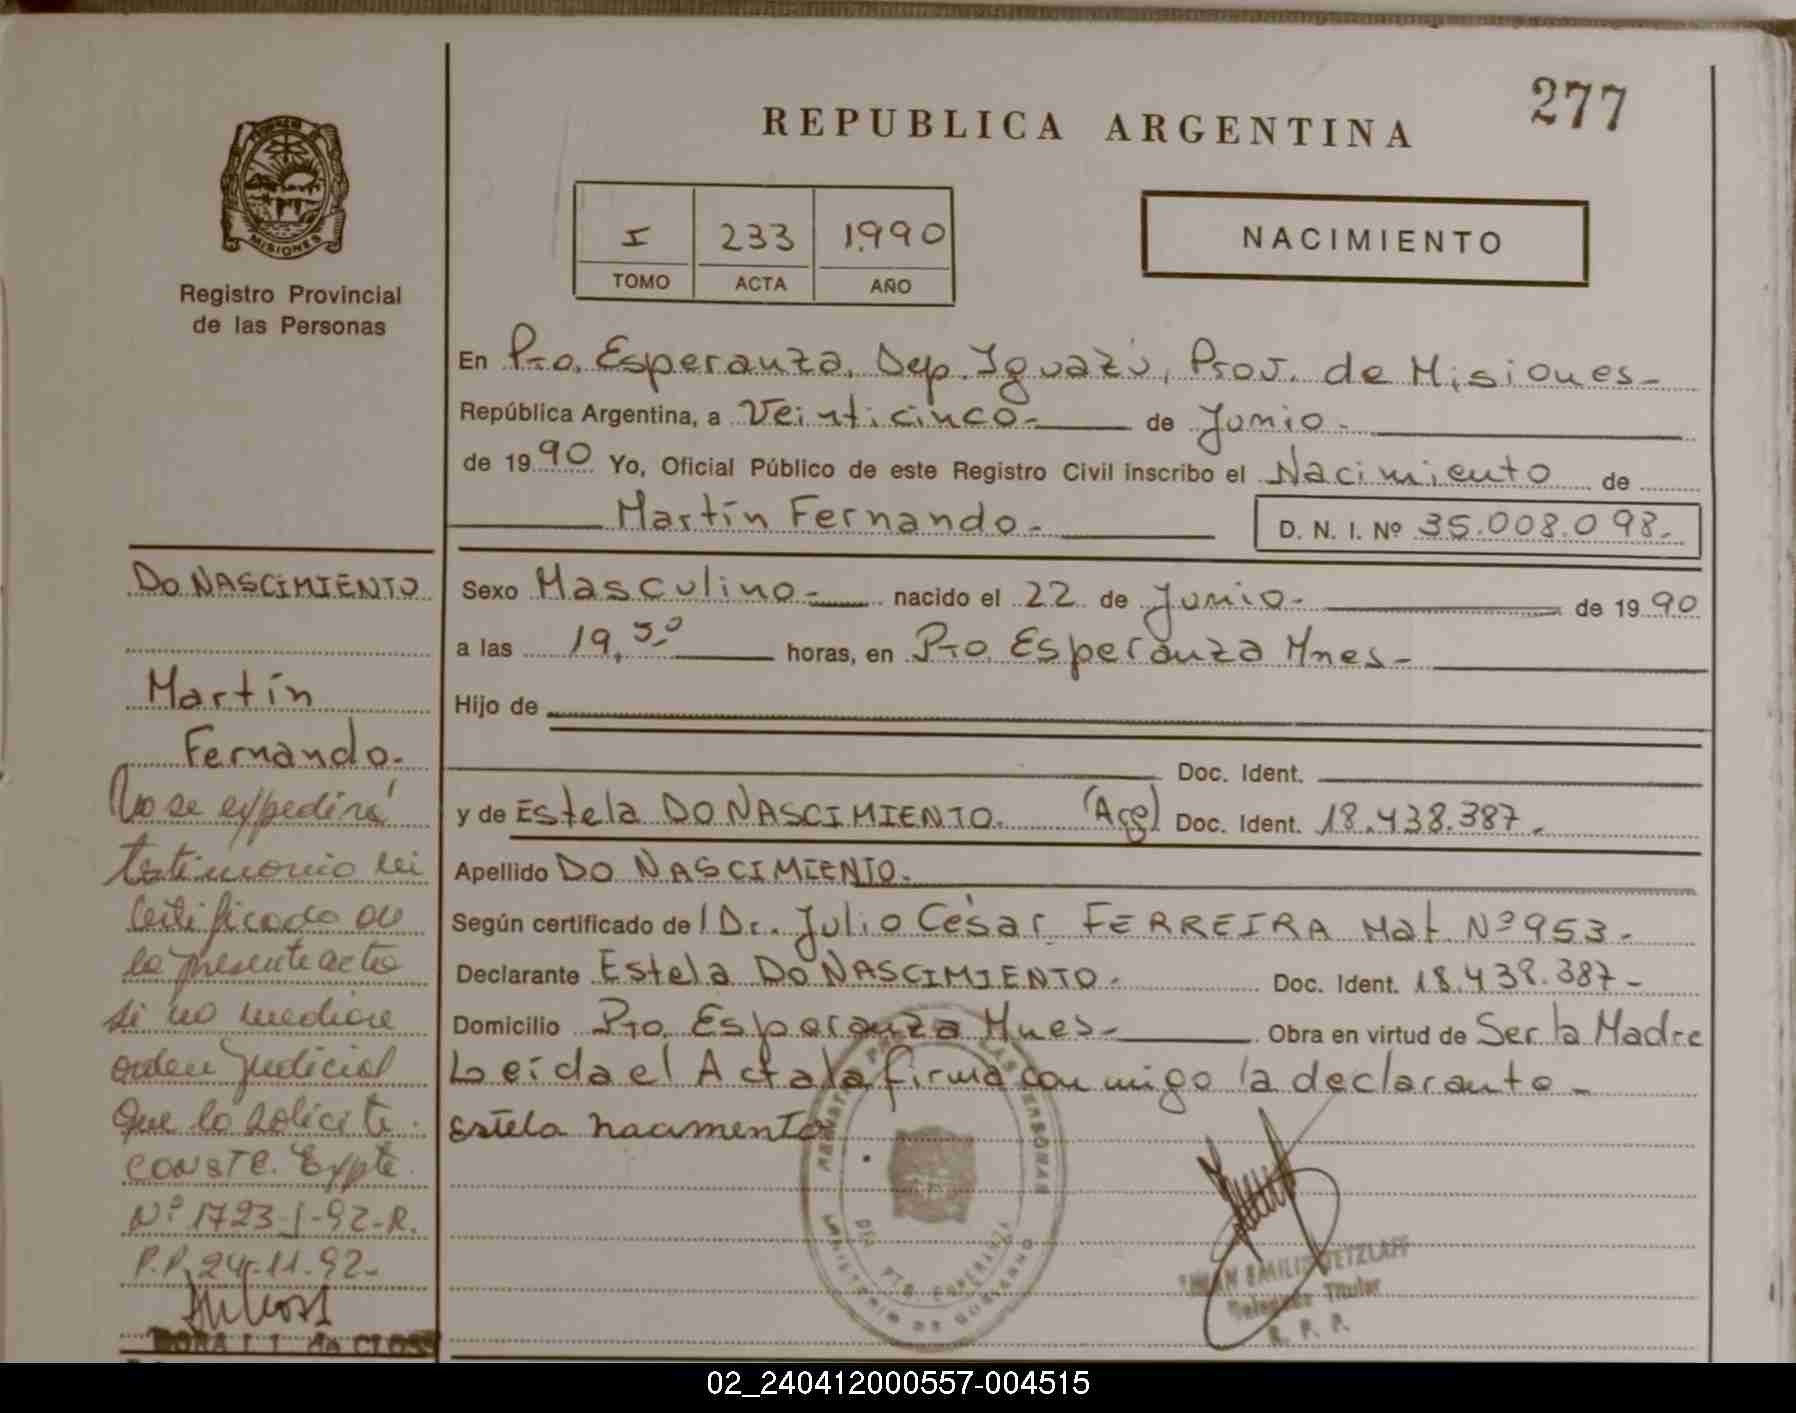 277
REPUBLICA ARGENTINA
MISIONES
Registro Provincial
de las Personas
I 233 1.990
TOMO ACTA AÑO
NACIMIENTO
En Pto. Esperanza, Dep. Iguazú, Prov. de Misiones-
República Argentina, a Veinticinco.- de Junio.-
de 19 90 Yo, Oficial Público de este Registro Civil inscribo el Nacimiento de
Martín Fernando.- D. N. I. Nº 35.008.098.-
Sexo Masculino.- nacido el 22 de Junio.- de 19 90
a las 19,30 horas, en Pto. Esperanza Mnes-
Hijo de
Doc. Ident.
y de Estela DO NASCIMIENTO. (Arg) Doc. Ident. 18.438.387.-
Apellido DO NASCIMIENTO.-
Según certificado de l Dr. Julio César FERREIRA Mat Nº 953.-
Declarante Estela DO NASCIMIENTO.- Doc. Ident. 18.438.387-
Domicilio Pto. Esperanza Mnes- Obra en virtud de Ser la Madre
Leída el Acta la firma con migo la declarante-
Estela nacimento
DO NASCIMIENTO
Martín
Fernando.-
No se expedirá
testimonio ni
certificado de
la presente acta
si no mediare
orden Judicial
que lo solicite.
CONSTE. Expte.
Nº 1723-J-92-R.
P.P. 24-11-92-
MINISTERIO DE GOBIERNO
Delegado Titular
R. P. P.
02_240412000557-004515